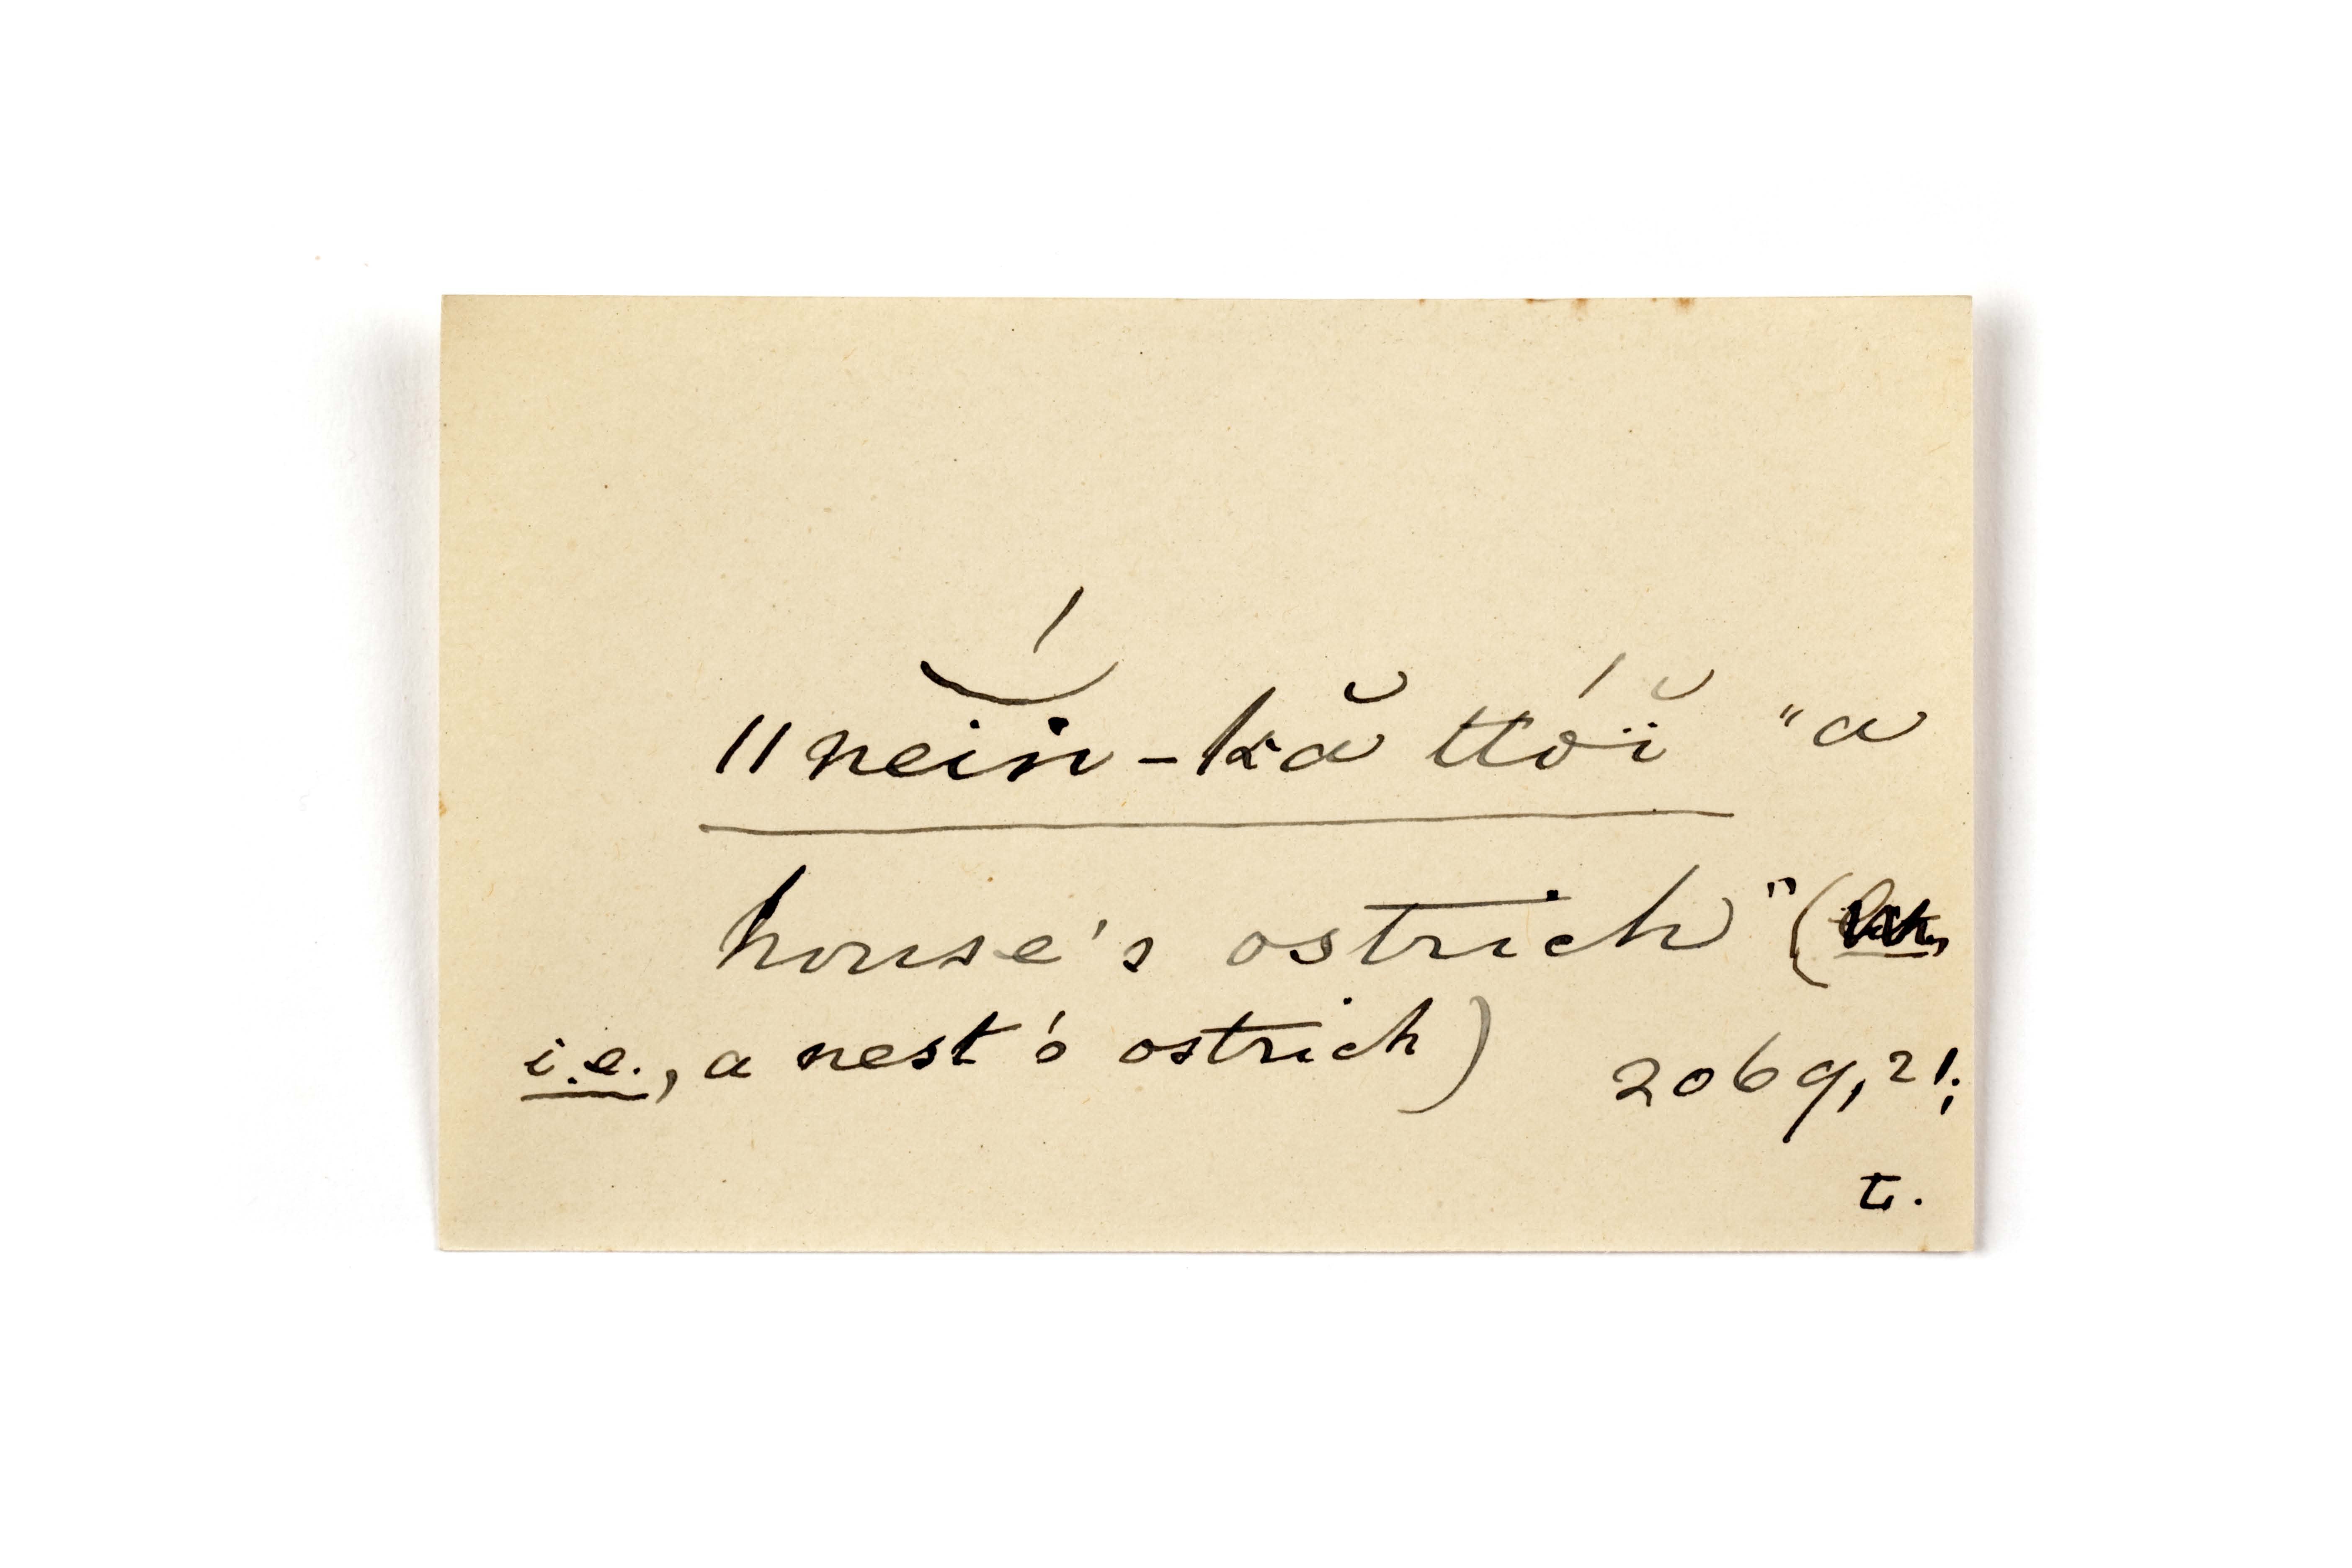 ǁneĭń-kă ttóĭ "a
house's ostrich" (
i.e., a nest's ostrich) 2069,21;
t.